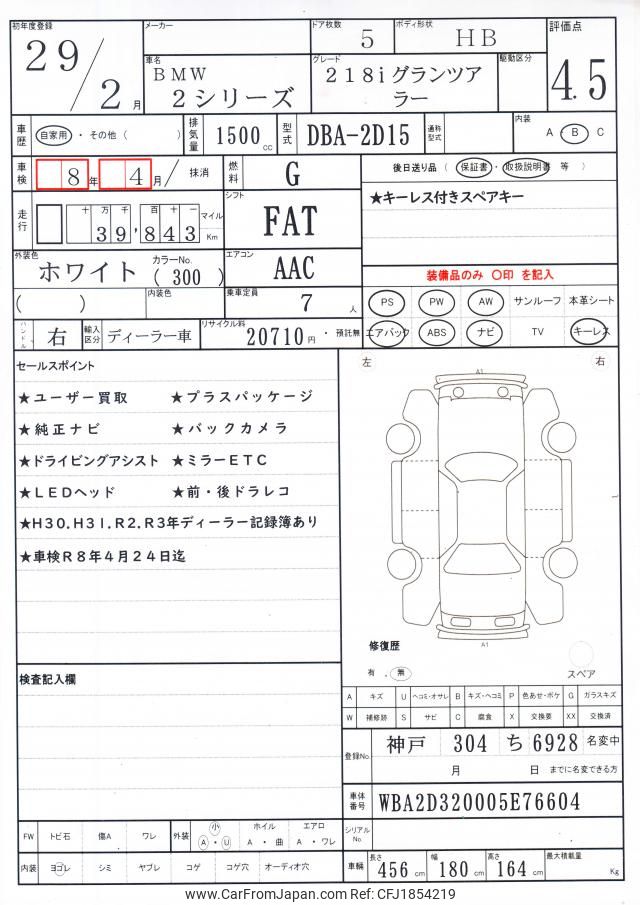 初年度登録 メーカー ドア枚数 5 ボディ形状 HB 評価点
29/2月
車名 BMW 2シリーズ グレード 218iグランツアラー 駆動区分 4.5
車歴 自家用・その他( ) 排気量 1500cc 型式 DBA-2D15 通称型式 内装 A・B C
車検 8年 4月/ 抹消 燃料 G 後日送り品(保証書・取扱説明書 等 )
走行 十万千百十一 39,843 マイル Km シフト FAT ★キーレス付きスペアキー
外装色 ホワイト カラーNo. (300) エアコン AAC 装備品のみ 〇印 を記入
( ) 内装色 乗車定員 7人 PS PW AW サンルーフ 本革シート
ハンドル 右 輸入区分 ディーラー車 リサイクル料 20710円・預託無 エアバック ABS ナビ TV キーレス
セールスポイント 左 右
A1
★ユーザー買取 ★プラスパッケージ
★純正ナビ ★バックカメラ
★ドライビングアシスト ★ミラーETC
★LEDヘッド ★前・後ドラレコ
★H30.H31.R2.R3年ディーラー記録簿あり
★車検R8年4月24日迄
A1
修復歴
有 . 無 スペア
検査記入欄
A キズ U ヘコミ・オサレ B キズ・ヘコミ P 色あせ・ボケ G ガラスキズ
W 補修跡 S サビ C 腐食 X 交換要 XX 交換済
登録No. 神戸 304 ち 6928 名変中
月 日 までに名変できる方
車体番号 WBA2D320005E76604
FW トビ石 傷A ワレ 外装 小 A・U ホイル A・曲 エアロ A・ワレ シリアルNo
内装 ヨゴレ シミ ヤブレ コゲ コゲ穴 オーディオ穴 車輌 長さ 456cm 幅 180cm 高さ 164cm 最大積載量 Kg
www.CarFromJapan.com Ref: CFJ1854219